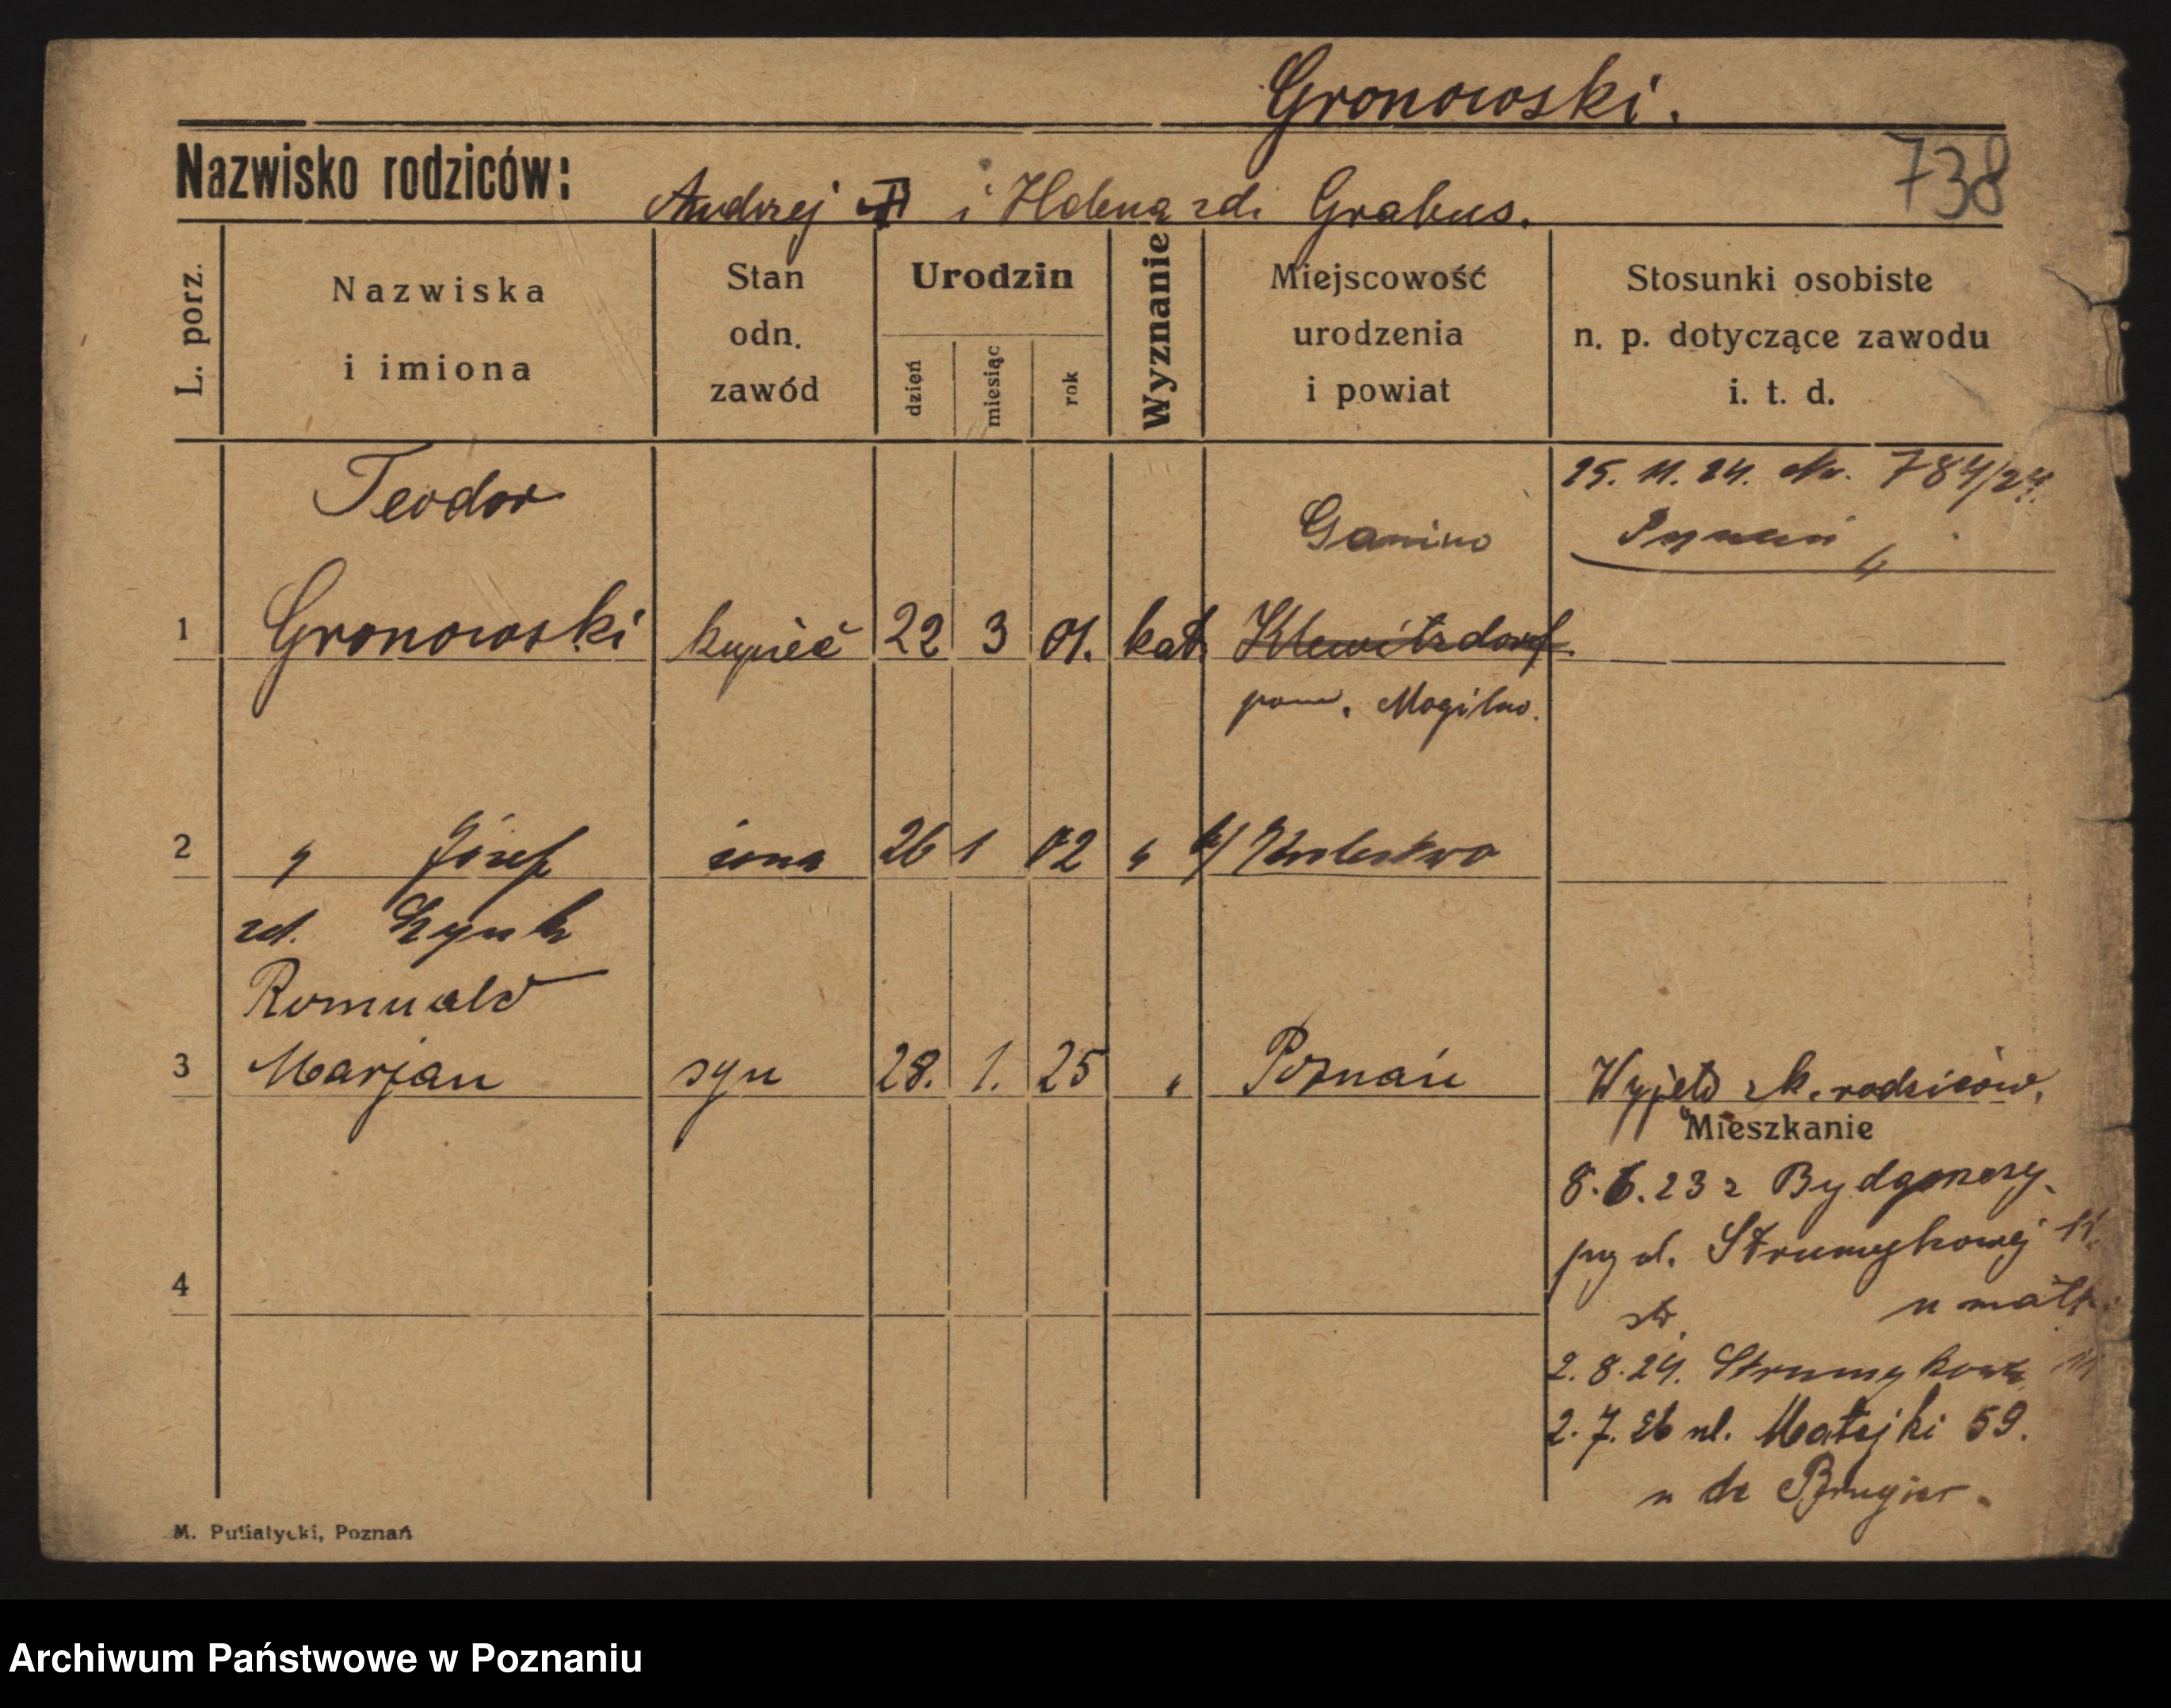 Gronowski.
738
Nazwisko rodziców:
Andrzej i Helena zd. Grabus.
L. porz.
Nazwiska
i imiona
Stan
odn.
zawód
Urodzin
dzień
miesiąc
rok
Wyznanie
Miejscowość
urodzenia
i powiat
Stosunki osobiste
n. p. dotyczące zawodu
i. t. d.
Teodor
25. 11. 24. Nr. 784/24.
1 Gronowski kupiec 22 3 01. kat. Klewitzdorf
pow. Mogilno.
2 " Józef żona 26 1 02 "
zd.
Romuald
3 Marjan syn 28. 1. 25 " Poznań Wyjęto z k. rodziców.
Mieszkanie
8. 6. 23 z Bydgoszcz.
Strumykowej 11.
4
2. 8. 24. Strumykowa
2. 7. 26 ul. Matejki 59.
M. Putiatycki, Poznań
Archiwum Państwowe w Poznaniu